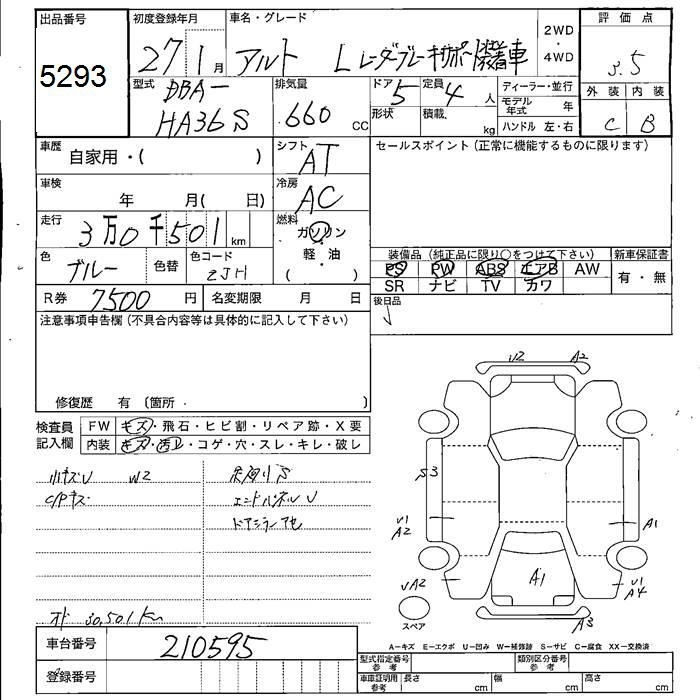 出品番号
5293
初度登録年月
27 1月
車名・グレード
アルト L レーダブレーキサポート装着車
2WD
・
4WD
評価点
3.5
外装 内装
C B
型式
DBA-
HA36S
排気量
660 CC
ドア 5
形状
定員 4 人
積載 kg
ディーラー・並行
モデル年式 年
ハンドル 左・右
車歴
自家用・( )
シフト
AT
セールスポイント (正常に機能するものに限ります)
車検
年 月( 日)
冷房
AC
走行
3万0千501 km
燃料
ガソリン
・
軽・油
( )
色
ブルー
色替
色コード
ZJH
装備品 (純正品に限り○をつけて下さい)
PS PW ABS エアB AW
SR ナビ TV カワ
新車保証書
有・無
R券 7500 円
名変期限 月 日
後日品
注意事項申告欄 (不具合内容等は具体的に記入して下さい)
修復歴 有 〔箇所 ・ 〕
検査員
記入欄
FW キズ・飛石・ヒビ割・リペア跡・X要
内装 キズ・汚レ・コゲ・穴・スレ・キレ・破レ
小キズU W2
C/Pキズ
エンドパネルU
オド 30,501Km
W2 A2
S3
U1
A2
A1
A1
UA2
U1
A4
A3
スペア
A=キズ E=エクボ U=凹み W=補修跡 S=サビ C=腐食 XX=交換済
車台番号 210595
登録番号
型式指定番号
参考
類別区分番号
参考
車庫証明用
参考
長さ cm
幅 cm
高さ cm